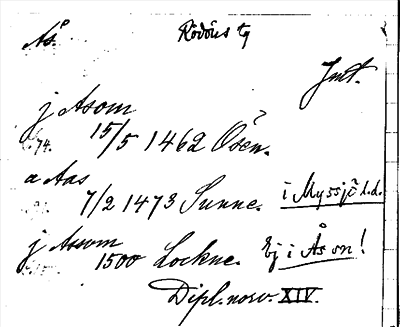 Ås. Rödöns tg
Jmt.
j Asom
74. 15/5 1462 Ösen.
a Aas
7/2 1473 Sunne. i Myssjö s.d.
j Assom
1500 Lockne. Ej i Ås sn!
Dipl. norv. XIV.